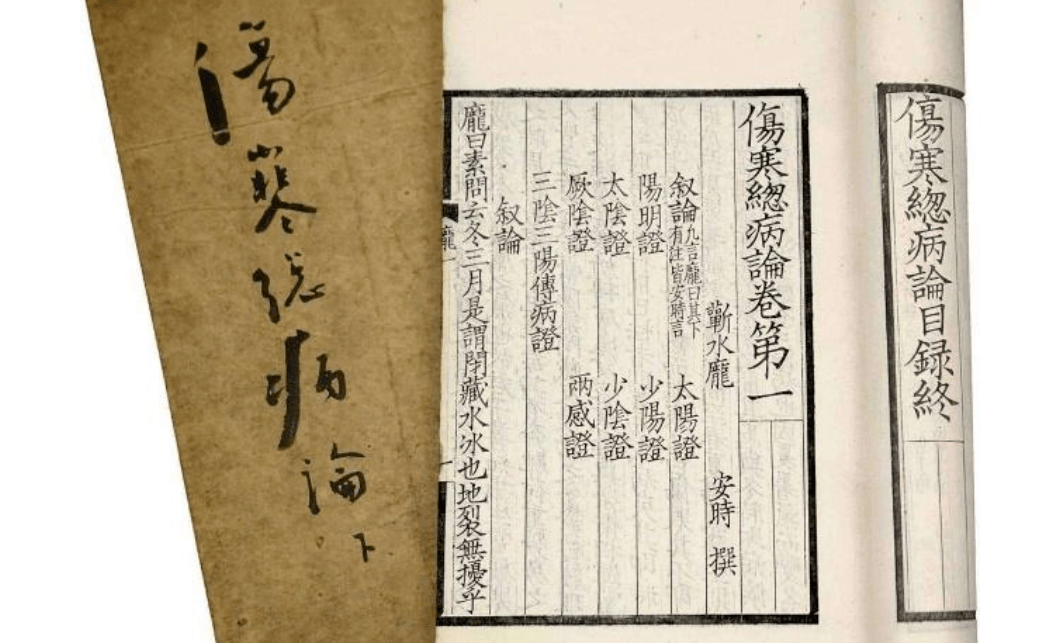 傷寒總病論下
傷寒緫病論目録終
傷寒緫病論卷第一
蘄水龐　安時　撰
叙論凡言龐曰其下有注皆安時言　太陽證
陽明證　少陽證
太陰證　少陰證
厥陰證　兩感證
三陰三陽傳病證
叙論
龐曰素問云冬三月是謂閉藏水冰也地裂無擾乎